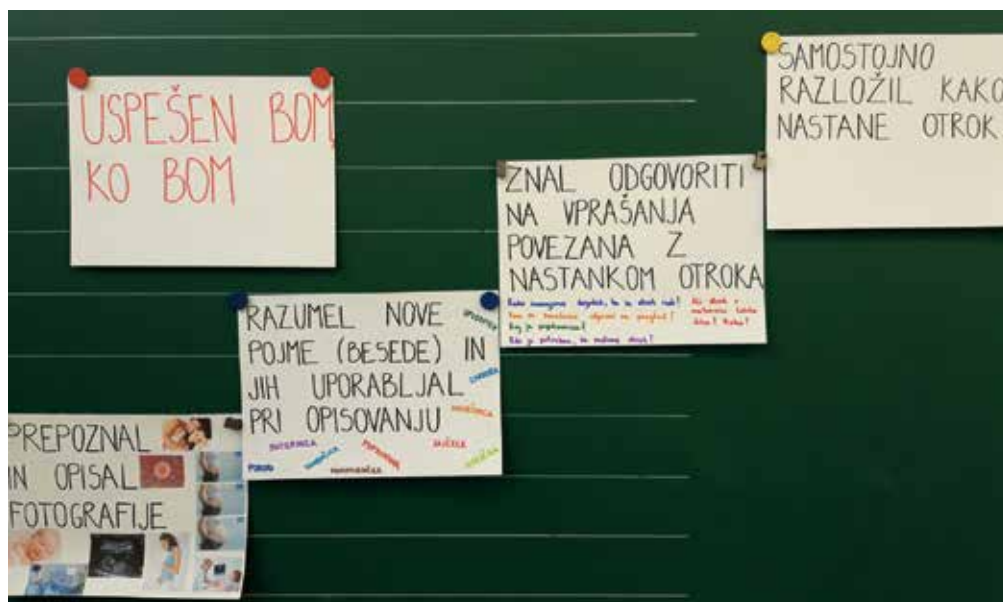 USPEŠEN BOM,
KO BOM
PREPOZNAL
IN OPISAL
FOTOGRAFIJE
RAZUMEL NOVE
POJME (BESEDE) IN
JIH UPORABLJAL
PRI OPISOVANJU
MATERNICA
POROD
POPKOVNICA
ZNAL ODGOVORITI
NA VPRAŠANJA
POVEZANA Z
NASTANKOM OTROKA
Kaj je popkovnica?
SAMOSTOJNO
RAZLOŽIL KAKO
NASTANE OTROK